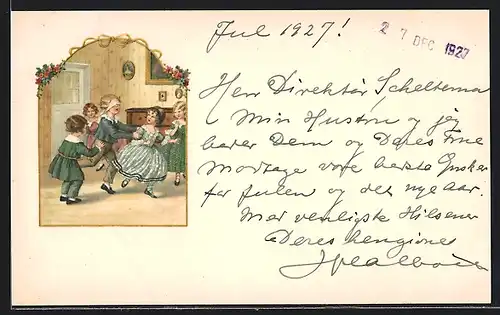 Jul 1927!
27 DEC 1927
Herr Direktör Scheltema
Min Hustru og jeg
beder Dem og Deres Frue
modtage vore bedste Ønsker
for Julen og det nye Aar.
Med venligste Hilsener
Deres hengivne